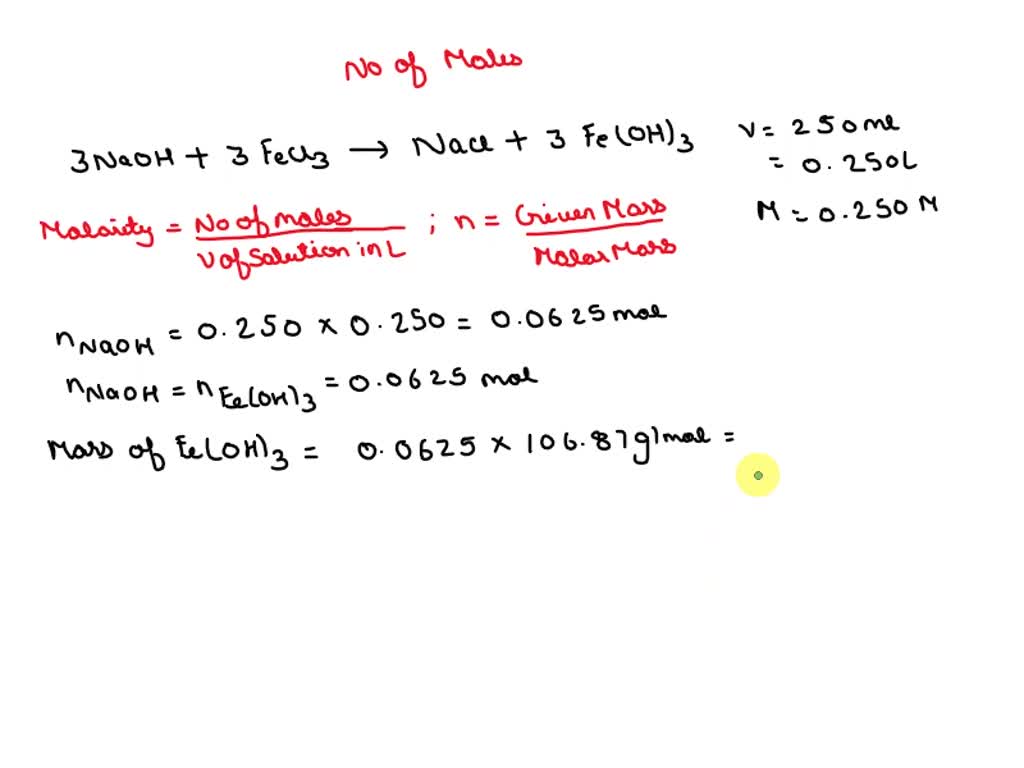 No of Moles
3NaOH + 3 FeCl3 → NaCl + 3 Fe(OH)3
V = 250ml
= 0.250L
M = 0.250 M
Molarity = No of moles / V of Solution in L ; n = Given Mass / Molar Mass
nNaOH = 0.250 × 0.250 = 0.0625 mol
nNaOH = nFe(OH)3 = 0.0625 mol
Mass of Fe(OH)3 = 0.0625 × 106.87g/mol =